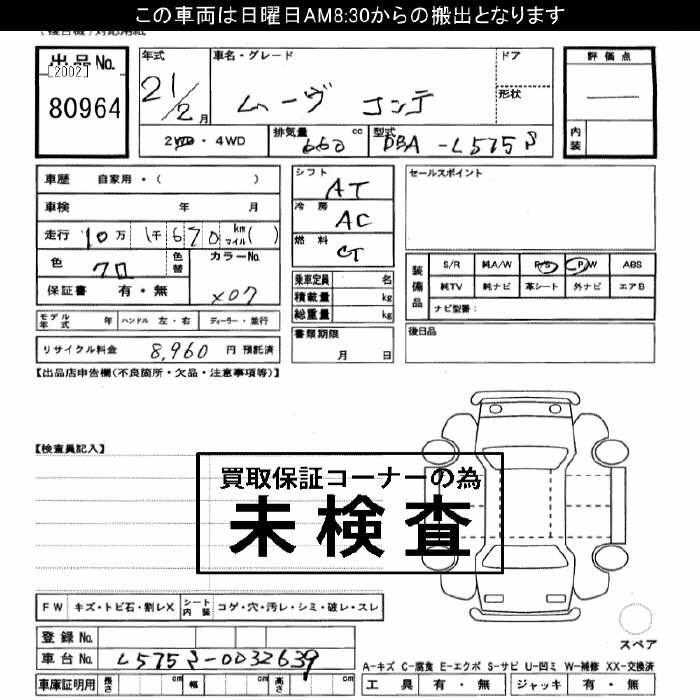 この車両は日曜日AM8:30からの搬出となります
出品No. [2002] 80964
年式 21/2月
車名・グレード ムーヴ コンテ
ドア
形状
評価点 —
内装
2WD・4WD
排気量 660 cc
型式 DBA-L575S
車歴 自家用・( )
車検 年 月
走行 10万 1千670 km マイル( )
色 クロ 色替 カラーNo. X07
保証書 有・無
シフト AT
冷房 AC
燃料 G
乗車定員 名
積載量 kg
総重量 kg
セールスポイント
装備品 S/R 純A/W P/S P/W ABS
純TV 純ナビ 革シート 外ナビ エアB
ナビ型番:
モデル年式 年 ハンドル 左・右 ディーラー・並行
書類期限 月 日
後日品
リサイクル料金 8,960 円 預託済
【出品店申告欄(不良箇所・欠品・注意事項等)】
【検査員記入】
買取保証コーナーの為
未検査
FW キズ・トビ石・割レX シート内装 コゲ・穴・汚レ・シミ・破レ・スレ
登録No.
車台No. L575S-0032639
スペア
A-キズ C-腐食 E-エクボ S-サビ U-凹ミ W-補修 XX-交換済
車庫証明用 長さ cm 幅 cm 高さ cm
工具 有・無 ジャッキ 有・無